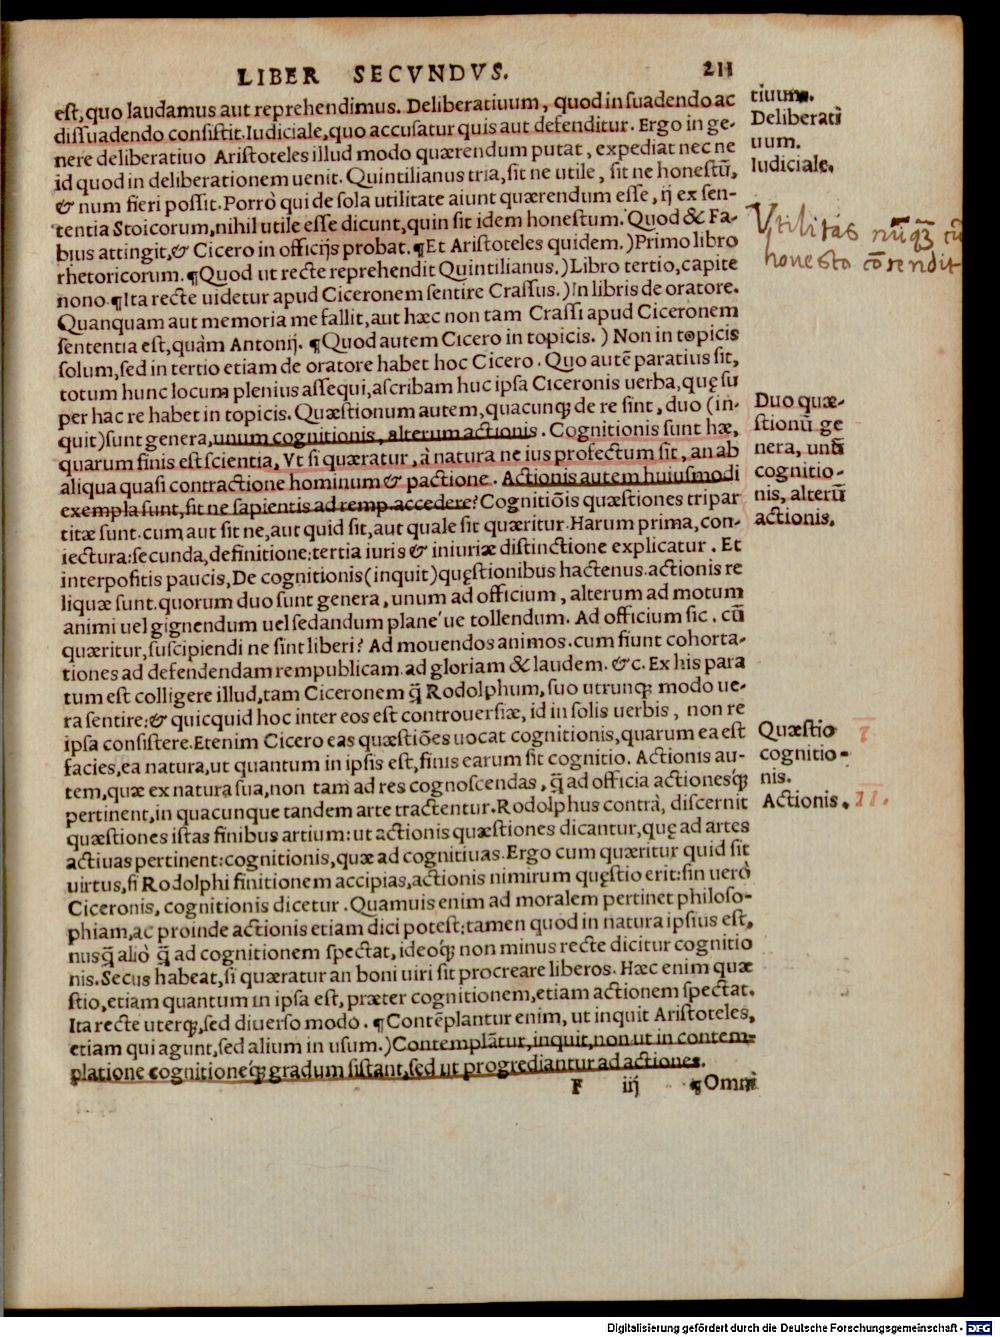 LIBER SECVNDVS. 211
est, quo laudamus aut reprehendimus. Deliberatiuum, quod in suadendo ac
dissuadendo consistit. Iudiciale, quo accusatur quis aut defenditur. Ergo in ge-
nere deliberatiuo Aristoteles illud modo quærendum putat, expediat nec ne
id quod in deliberationem uenit. Quintilianus tria, sit ne utile, sit ne honestū,
& num fieri possit. Porrò qui de sola utilitate aiunt quærendum esse, ij ex sen-
tentia Stoicorum, nihil utile esse dicunt, quin sit idem honestum. Quod & Fa-
bius attingit, & Cicero in officijs probat. ¶Et Aristoteles quidem.) Primo libro
rhetoricorum. ¶Quod ut recte reprehendit Quintilianus.) Libro tertio, capite
nono. ¶Ita recte uidetur apud Ciceronem sentire Crassus.) In libris de oratore.
Quanquam aut memoria me fallit, aut hæc non tam Crassi apud Ciceronem
sententia est, quàm Antonij. ¶Quod autem Cicero in topicis.) Non in topicis
solum, sed in tertio etiam de oratore habet hoc Cicero. Quo autē paratius sit,
totum hunc locum plenius assequi, ascribam huc ipsa Ciceronis uerba, quę su
per hac re habet in topicis. Quæstionum autem, quacunq; de re sint, duo (in-
quit) sunt genera, unum cognitionis, alterum actionis. Cognitionis sunt hæ,
quarum finis est scientia, Vt si quæratur, à natura ne ius profectum sit, an ab
aliqua quasi contractione hominum & pactione. Actionis autem huiusmodi
exempla sunt, sit ne sapientis ad remp. accedere? Cognitiōis quæstiones tripar
titæ sunt. cum aut sit ne, aut quid sit, aut quale sit quæritur. Harum prima, con-
iectura: secunda, definitione: tertia iuris & iniuriæ distinctione explicatur. Et
interpositis paucis, De cognitionis (inquit) quęstionibus hactenus. actionis re
liquæ sunt. quorum duo sunt genera, unum ad officium, alterum ad motum
animi uel gignendum uel sedandum plane'ue tollendum. Ad officium sic. cū
quæritur, suscipiendi ne sint liberi? Ad mouendos animos. cum fiunt cohorta-
tiones ad defendendam rempublicam. ad gloriam & laudem. &c. Ex his para
tum est colligere illud, tam Ciceronem q̄ Rodolphum, suo utrunq; modo ue-
ra sentire: & quicquid hoc inter eos est controuersiæ, id in solis uerbis, non re
ipsa consistere. Etenim Cicero eas quæstiōes uocat cognitionis, quarum ea est
facies, ea natura, ut quantum in ipsis est, finis earum sit cognitio. Actionis au-
tem, quæ ex natura sua, non tam ad res cognoscendas, q̄ ad officia actionesq́;
pertinent, in quacunque tandem arte tractentur. Rodolphus contrà, discernit
quæstiones istas finibus artium: ut actionis quæstiones dicantur, quę ad artes
actiuas pertinent: cognitionis, quæ ad cognitiuas. Ergo cum quæritur quid sit
uirtus, si Rodolphi finitionem accipias, actionis nimirum quęstio erit: sin uerò
Ciceronis, cognitionis dicetur. Quamuis enim ad moralem pertinet philoso-
phiam, ac proinde actionis etiam dici potest: tamen quod in natura ipsius est,
nusq̄ aliò q̄ ad cognitionem spectat, ideoq́; non minus recte dicitur cognitio
nis. Secus habeat, si quæratur an boni uiri sit procreare liberos. Hæc enim quæ
stio, etiam quantum in ipsa est, præter cognitionem, etiam actionem spectat.
Ita recte uterq;, sed diuerso modo. ¶Contēplantur enim, ut inquit Aristoteles,
etiam qui agunt, sed alium in usum.) Contemplātur, inquit, non ut in contem-
platione cognitioneq́; gradum sistant, sed ut progrediantur ad actiones.
F iij ¶Omni
tiuum.
Deliberati
uum.
Iudiciale.
Vtilitas nūq̄ȝ cū
honesto cōtendit
Duo quæ-
stionū ge
nera, unū
cognitio-
nis, alterū
actionis.
Quæstio I
cognitio-
nis.
Actionis. II.
Digitalisierung gefördert durch die Deutsche Forschungsgemeinschaft - DFG